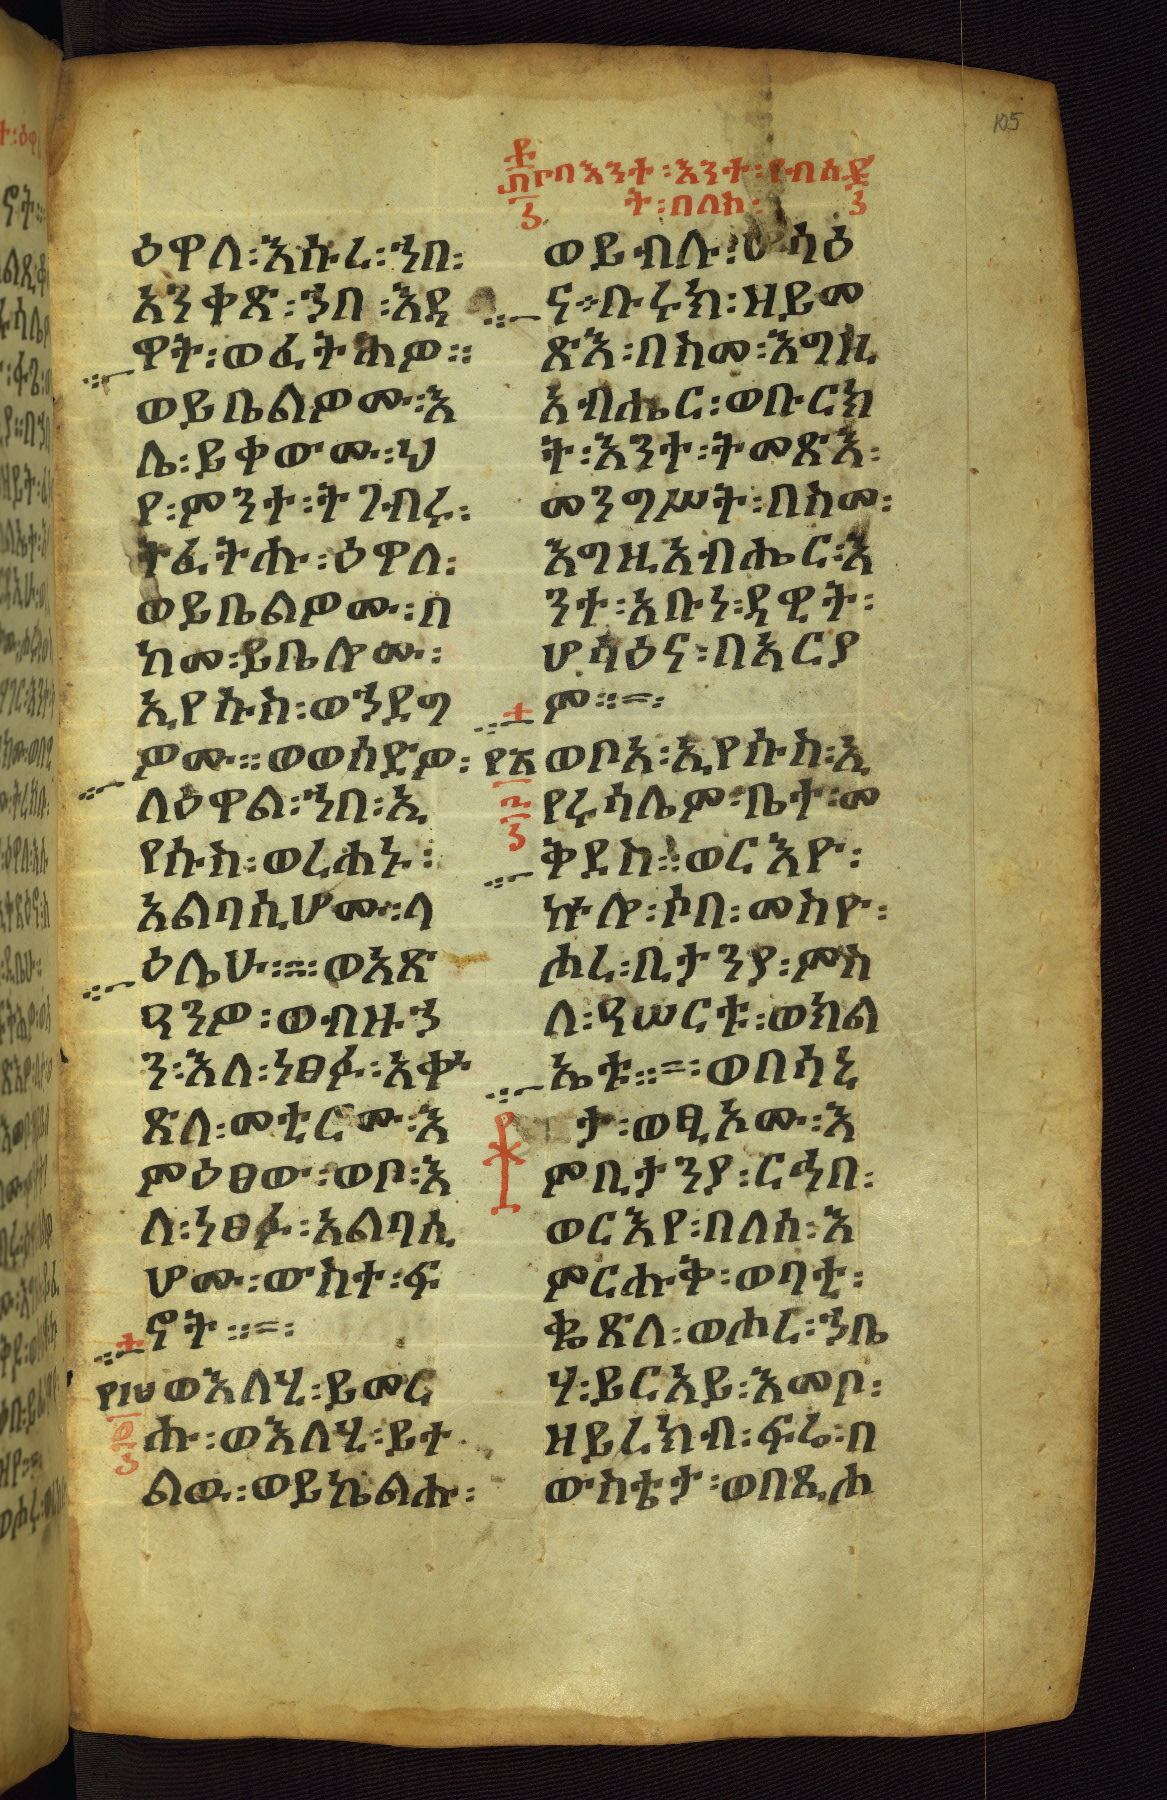 105
በእንተ፡እንተ፡የብሰ
ት፡በለስ፡
ዕዋለ፡እሱረ፡ኀበ፡
አንቀጽ፡ኀበ፡እዳ
ዋት፡ወፈትሐዎ።
ወይቤልዎሙ፡እ
ለ፡ይቀውሙ፡ህ
የ፡ምንተ፡ትገብሩ፡
ትፈትሑ፡ዕዋለ፡
ወይቤልዎሙ፡በ
ከመ፡ይቤሎሙ፡
ኢየሱስ፡ወኀደግ
ዎሙ።ወወሰድዎ፡
ለዕዋል፡ኀበ፡ኢ
የሱስ፡ወረሐኑ፡
አልባሲሆሙ፡ላ
ዕሌሁ፡።ወአጽ
ዓንዎ፡ወብዙኅ
ን፡እለ፡ነፀፉ፡አቍ
ጽለ፡መቲሮሙ፡እ
ምዕፀው፡ወቦ፡እ
ለ፡ነፀፉ፡አልባሲ
ሆሙ፡ውስተ፡ፍ
ኖት።=፡
ወእለሂ፡ይመር
ሑ፡ወእለሂ፡ይተ
ልዉ፡ወይኬልሑ፡
ወይብሉ፡ሆሳዕ
ና።ቡሩክ፡ዘይመ
ጽእ፡በስመ፡እግዚ
አብሔር፡ወቡርክ
ት፡እንተ፡ትመጽእ፡
መንግሥት፡በስመ፡
እግዚአብሔር፡እ
ንተ፡አቡነ፡ዳዊት፡
ሆሳዕና፡በአርያ
ም።=፡
ወቦአ፡ኢየሱስ፡ኢ
የሩሳሌም፡ቤተ፡መ
ቅደስ።ወርእዮ፡
ኵሎ፡ሶበ፡መስየ፡
ሐረ፡ቢታንያ፡ምስ
ለ፡ዓሠርቱ፡ወክል
ኤቱ።=፡ወበሳኒ
ታ፡ወፂኦሙ፡እ
ምቢታንያ፡ርኅበ፡
ወርእየ፡በለሰ፡እ
ምርሑቅ፡ወባቲ፡
ቈጽለ፡ወሐረ፡ኀቤ
ሃ፡ይርአይ፡እመቦ፡
ዘይረክብ፡ፍሬ፡በ
ውስቴታ፡ወበጺሐ